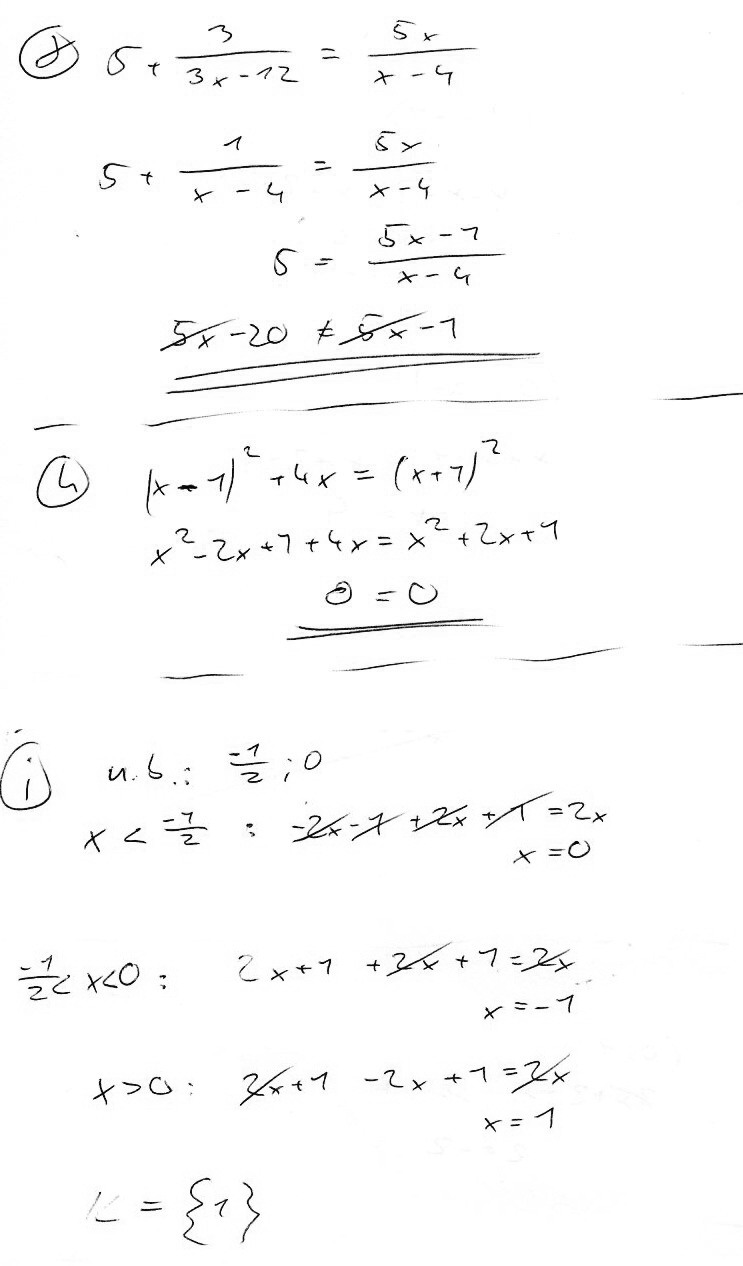 g) 5 + 3/(3x-12) = 5x/(x-4)
5 + 1/(x-4) = 5x/(x-4)
5 = (5x-1)/(x-4)
5x-20 ≠ 5x-1
h) (x-1)² + 4x = (x+1)²
x²-2x+1+4x = x²+2x+1
0 = 0
i) n.b.: -1/2 ; 0
x < -1/2 : -2x-1 +2x +1 = 2x
x = 0
-1/2 < x < 0 : 2x+1 +2x +1 = 2x
x = -1
x > 0 : 2x+1 -2x +1 = 2x
x = 1
K = {1}